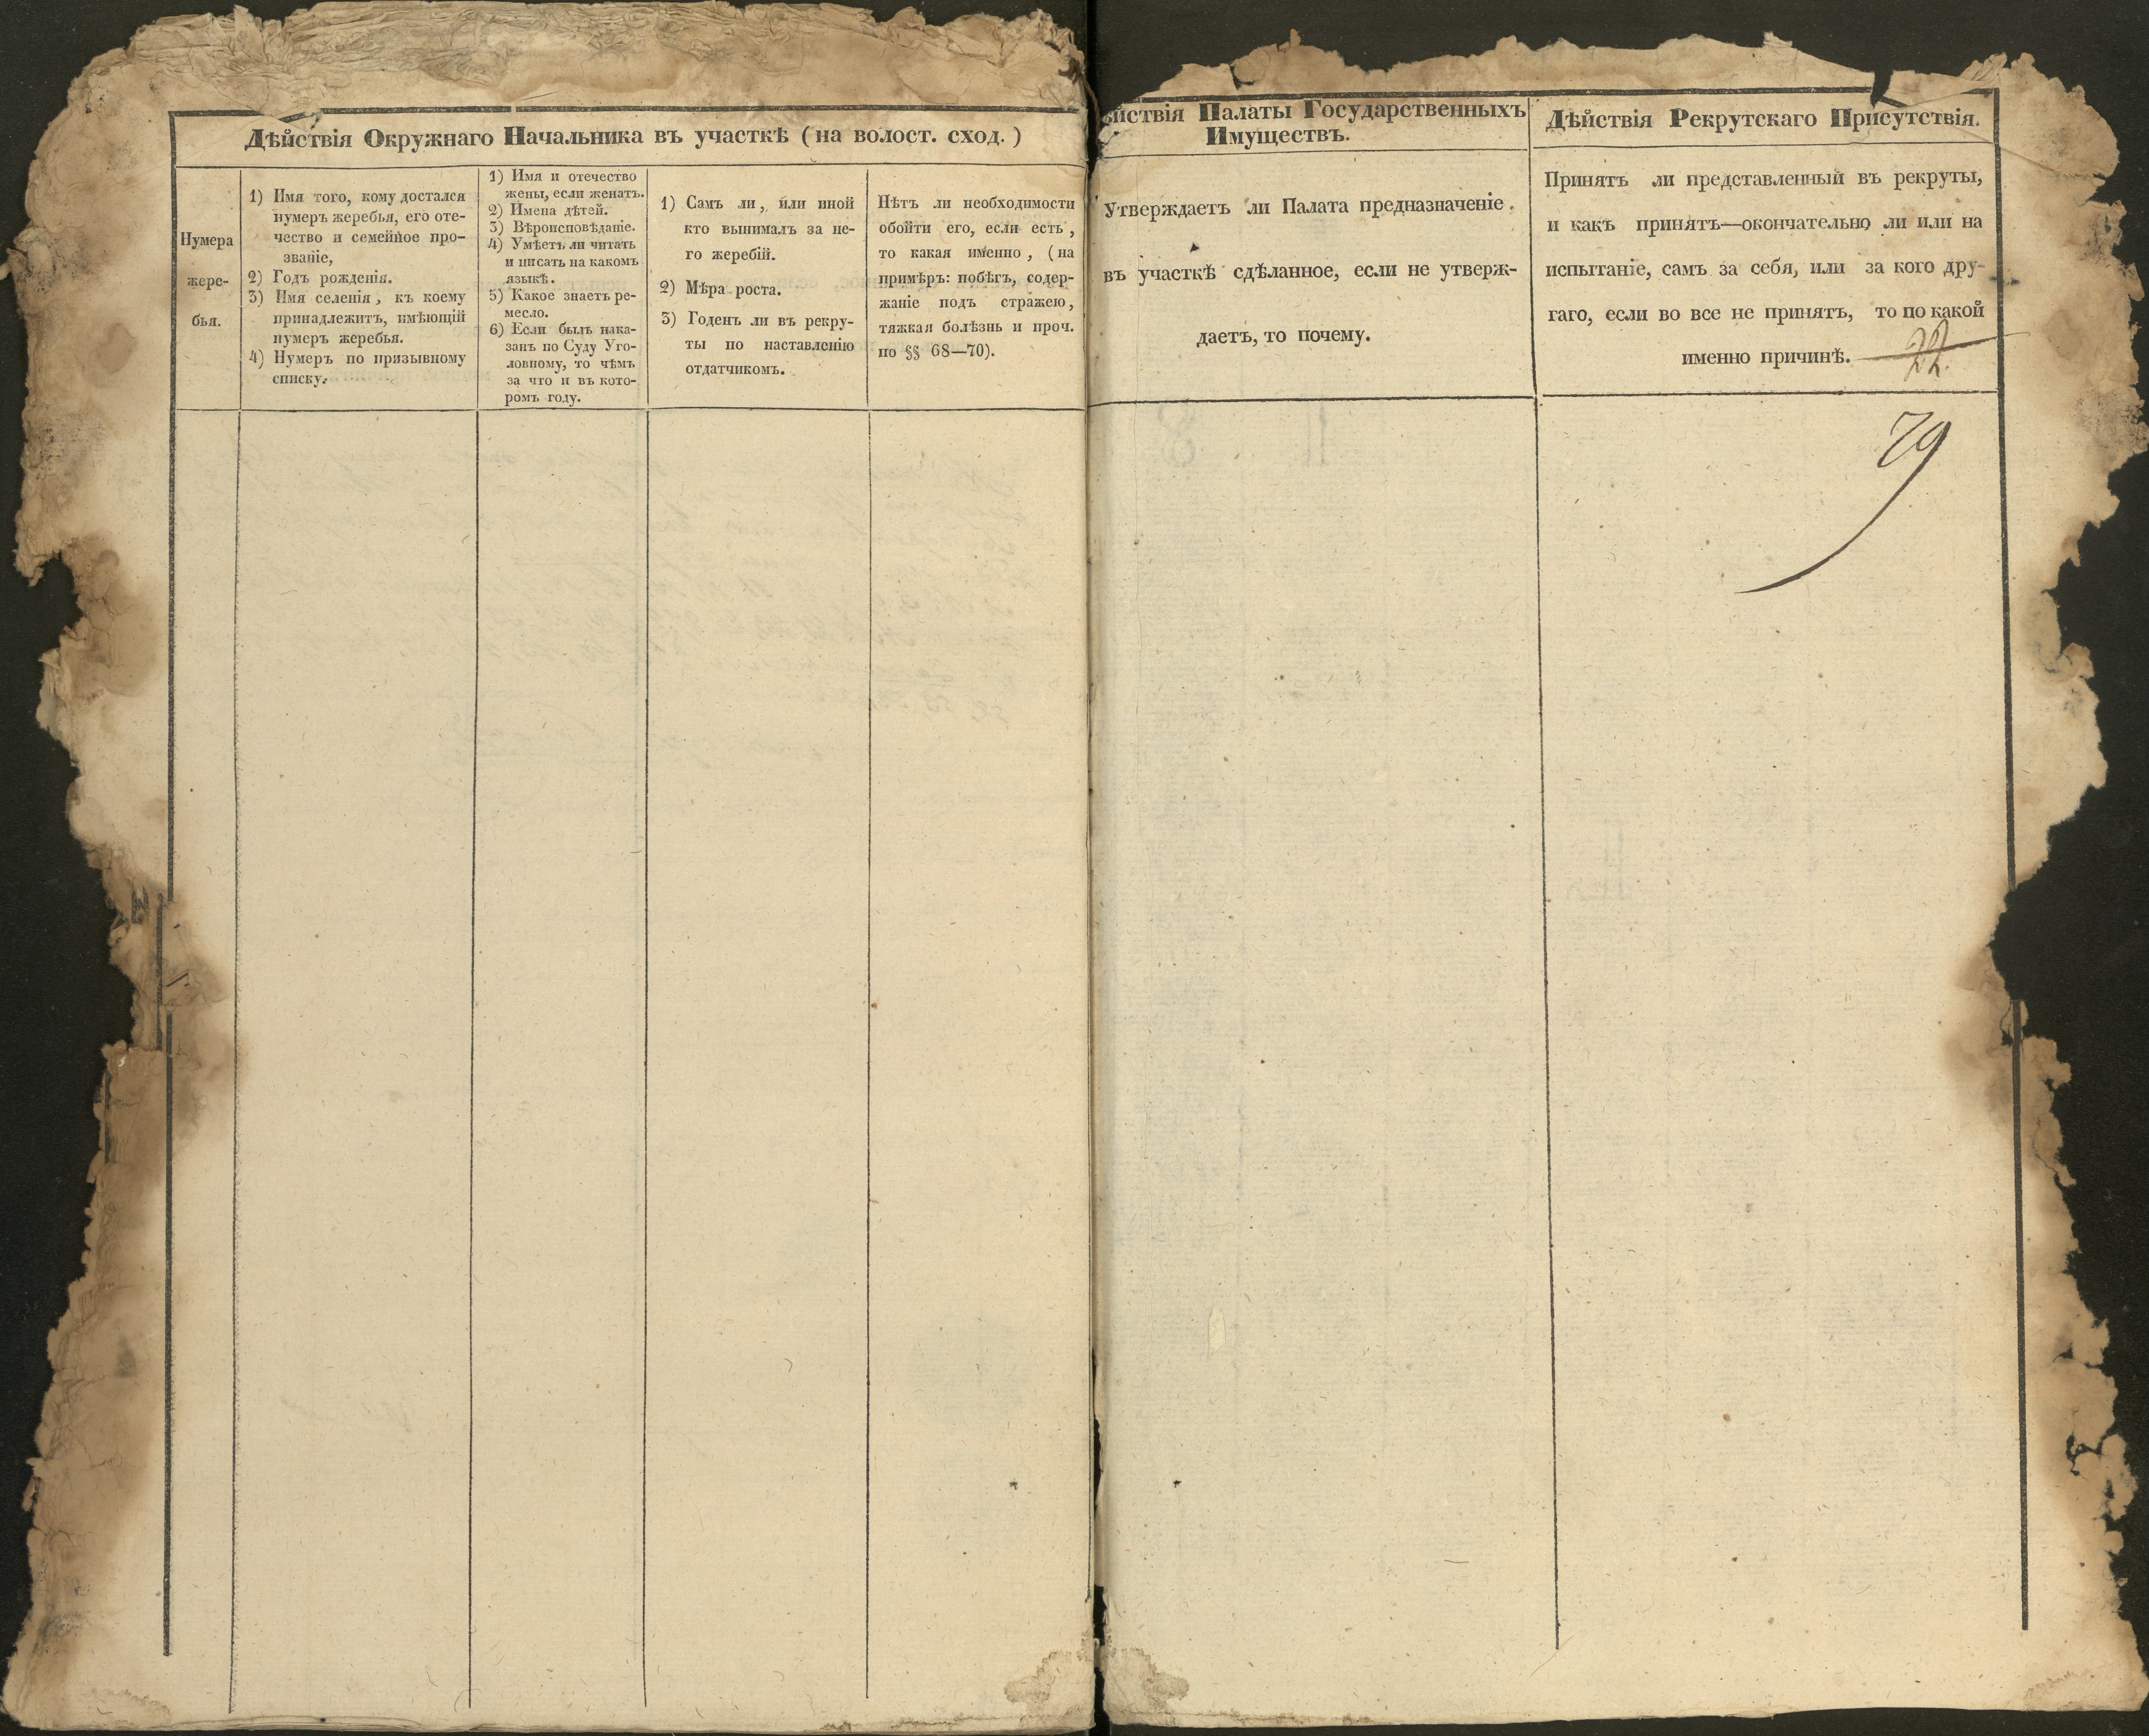 Дѣйствія Окружнаго Начальника въ участкѣ (на волост. сход.)
Нумера
жере-
бья.
1) Имя того, кому достался
нумеръ жеребья, его оте-
чество и семейное про-
званіе,
2) Годъ рожденія.
3) Имя селенія, къ коему
принадлежитъ, имѣющій
нумеръ жеребья.
4) Нумеръ по призывному
списку.
1) Имя и отечество
жены, если женатъ.
2) Имена дѣтей.
3) Вѣроисповѣданіе.
4) Умѣетъ ли читать
и писать на какомъ
языкѣ.
5) Какое знаетъ ре-
месло.
6) Если былъ нака-
занъ по Суду Уго-
ловному, то чѣмъ
за что и въ кото-
ромъ году.
1) Самъ ли, или иной
кто вынималъ за не-
го жеребій.
2) Мѣра роста.
3) Годенъ ли въ рекру-
ты по наставленію
отдатчикомъ.
Нѣтъ ли необходимости
обойти его, если есть,
то какая именно, (на
примѣръ: побѣгъ, содер-
жаніе подъ стражею,
тяжкая болѣзнь и проч.
по §§ 68—70).
йствія Палаты Государственныхъ
Имуществъ.
Утверждаетъ ли Палата предназначеніе
въ участкѣ сдѣланное, если не утверж-
даетъ, то почему.
Дѣйствія Рекрутскаго Присутствія.
Принятъ ли представленный въ рекруты,
и какъ принятъ—окончательно ли или на
испытаніе, самъ за себя, или за кого дру-
гаго, если во все не принятъ, то по какой
именно причинѣ.
22.
79